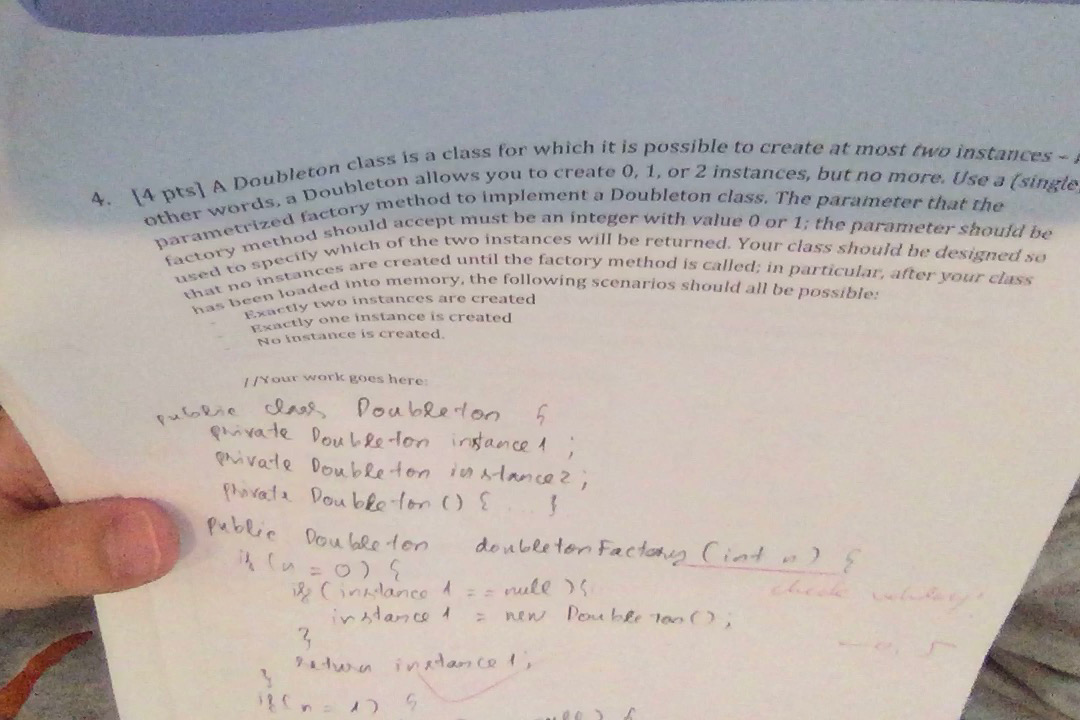 4. [4 pts] A Doubleton class is a class for which it is possible to create at most two instances –
other words, a Doubleton allows you to create 0, 1, or 2 instances, but no more. Use a (single,
parametrized factory method to implement a Doubleton class. The parameter that the
factory method should accept must be an integer with value 0 or 1; the parameter should be
used to specify which of the two instances will be returned. Your class should be designed so
that no instances are created until the factory method is called; in particular, after your class
has been loaded into memory, the following scenarios should all be possible:
- Exactly two instances are created
- Exactly one instance is created
- No instance is created.
//Your work goes here:
public class Doubleton {
private Doubleton instance1 ;
private Doubleton instance2 ;
private Doubleton () { ... }
public Doubleton doubletonFactory (int n) {
if (n = 0) {
if (instance 1 == null ) {
check validity!
instance 1 = new Doubleton();
}
-0.5
return instance1;
}
if (n = 1) {
null ) {